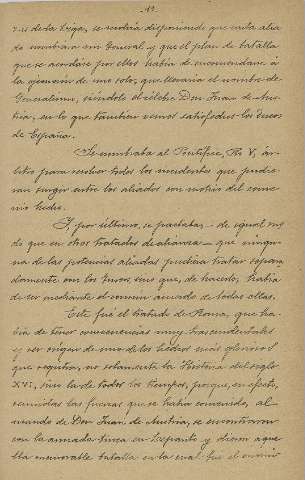 -49-
de la Liga, se resolvía disponiendo que cada aliado
nombrara un General, y que el plan de batalla
que se acordase por ellos había de encomendarse á
la ejecución de uno solo, que llevaría el nombre de
Generalísimo, siéndolo el célebre Don Juan de Aus-
tria, en lo que también vemos satisfechos los deseos
de España.
Se nombraba al Pontífice, Pío V, ár-
bitro para resolver todos los incidentes que pudie-
ran surgir entre los aliados con motivo del conve-
nio hecho.
Y, por último, se pactaba - de igual mo-
do que en otros tratados de alianza - que ningu-
na de las potencias aliadas pudiera tratar separa-
damente con los turcos, sino que, de hacerlo, había
de ser mediante el común acuerdo de todas ellas.
Este fué el tratado de Roma, que ha-
bía de tener consecuencias muy trascendentales
y ser origen de uno de los hechos más gloriosos
que registra, no solamente la Historia del siglo
XVI, sino la de todos los tiempos, porque, en efecto,
reunidas las fuerzas que se había convenido, al
mando de Don Juan de Austria, se encontraron
con la armada turca en Lepanto y dieron aque-
lla memorable batalla en la cual fué el